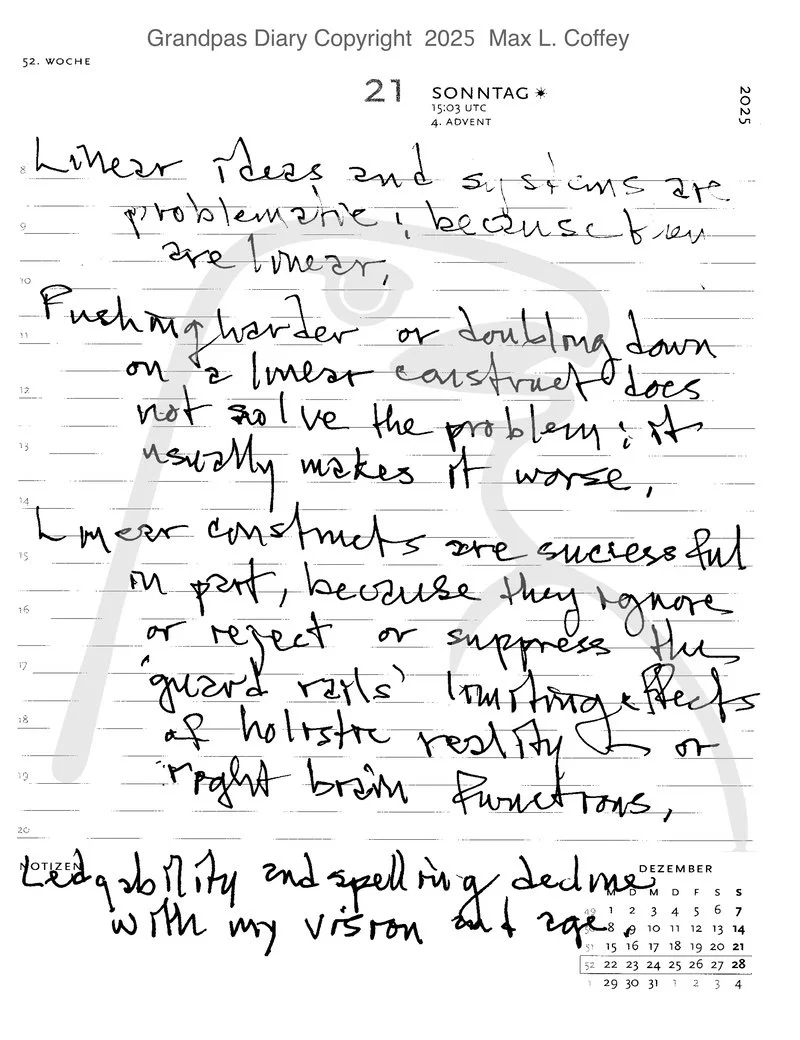 Grandpas Diary Copyright 2025 Max L. Coffey
52. WOCHE
21 SONNTAG ☀
15:03 UTC
4. ADVENT
2025
8 Linear ideas and systems are
9 problematic; because they
are linear,
10
11 Pushing harder or doubling down
on a linear construct does
12
not solve the problem; it
13 usually makes it worse,
14
Linear constructs are successful
15
in part, because they ignore
16
or reject or suppress the
17
'guard rails' limiting effects
18 of holistic reality or
19 right brain functions,
20
NOTIZEN
Ledgability and spelling decline
with my vision and age.
DEZEMBER
M D M D F S S
49 1 2 3 4 5 6 7
8 9 10 11 12 13 14
51 15 16 17 18 19 20 21
52 22 23 24 25 26 27 28
1 29 30 31 1 2 3 4